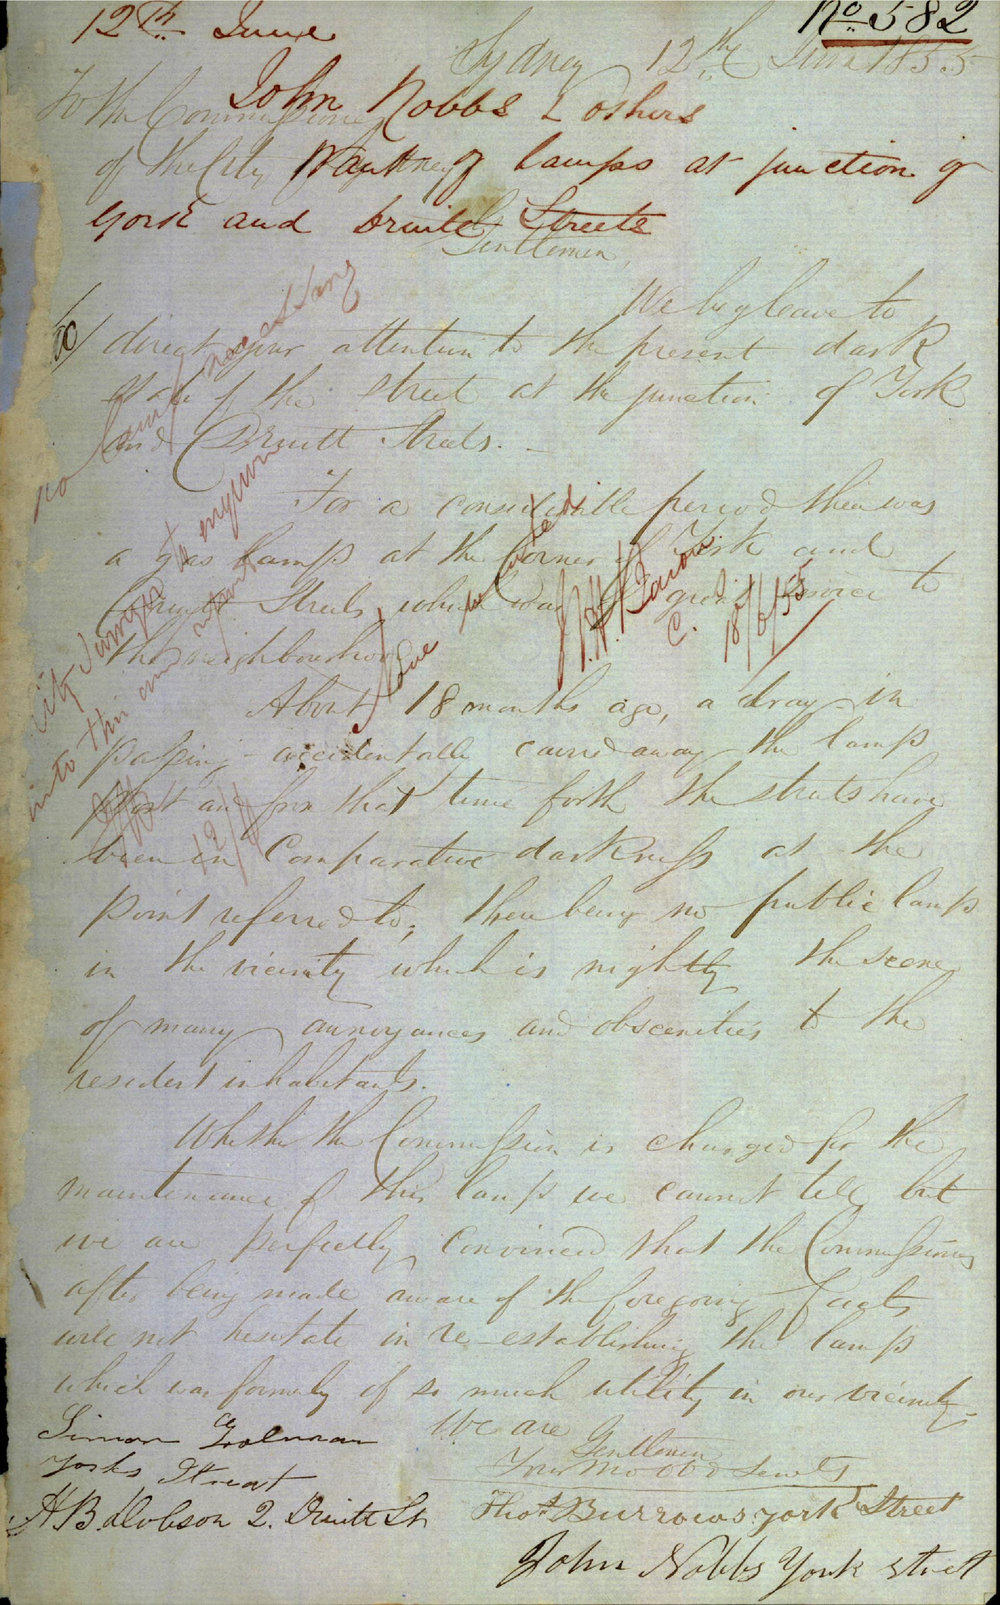 No 582
12th June
Sydney 12th June 1855
John Nobbs & others
To the Commissioners
of the City
Wanting lamps at junction of
York and Druitt Streets
Gentlemen,
We beg leave to
direct your attention to the present dark
state of the street at the junction of York
and Druitt Streets.
For a considerable period there was
a gas lamp at the Corner of York and
Druitt Streets which was of great service to
the neighbourhood
About 18 months ago, a dray in
passing accidentally carried away the lamp
post and from that time forth the streets have
been in Comparative darkness at the
point referred to, there being no public lamp
in the vicinity which is nightly the scene
of many annoyances and obscenities to the
resident inhabitants.
Whether the Commission is charged for the
maintenance of this lamp we cannot tell but
we are perfectly convinced that the Commissioners
after being made aware of the foregoing facts
will not hesitate in re-establishing the lamp
which was formerly of so much utility in our vicinity
We are
Gentlemen
Your Mo Obd Servts
Simon
York Street
A B Dobson 2. Druitt St
Thos Burrows York Street
John Nobbs York street
City Surveyor to enquire
into this and report
12/6
no lamp necessary
18/6/55